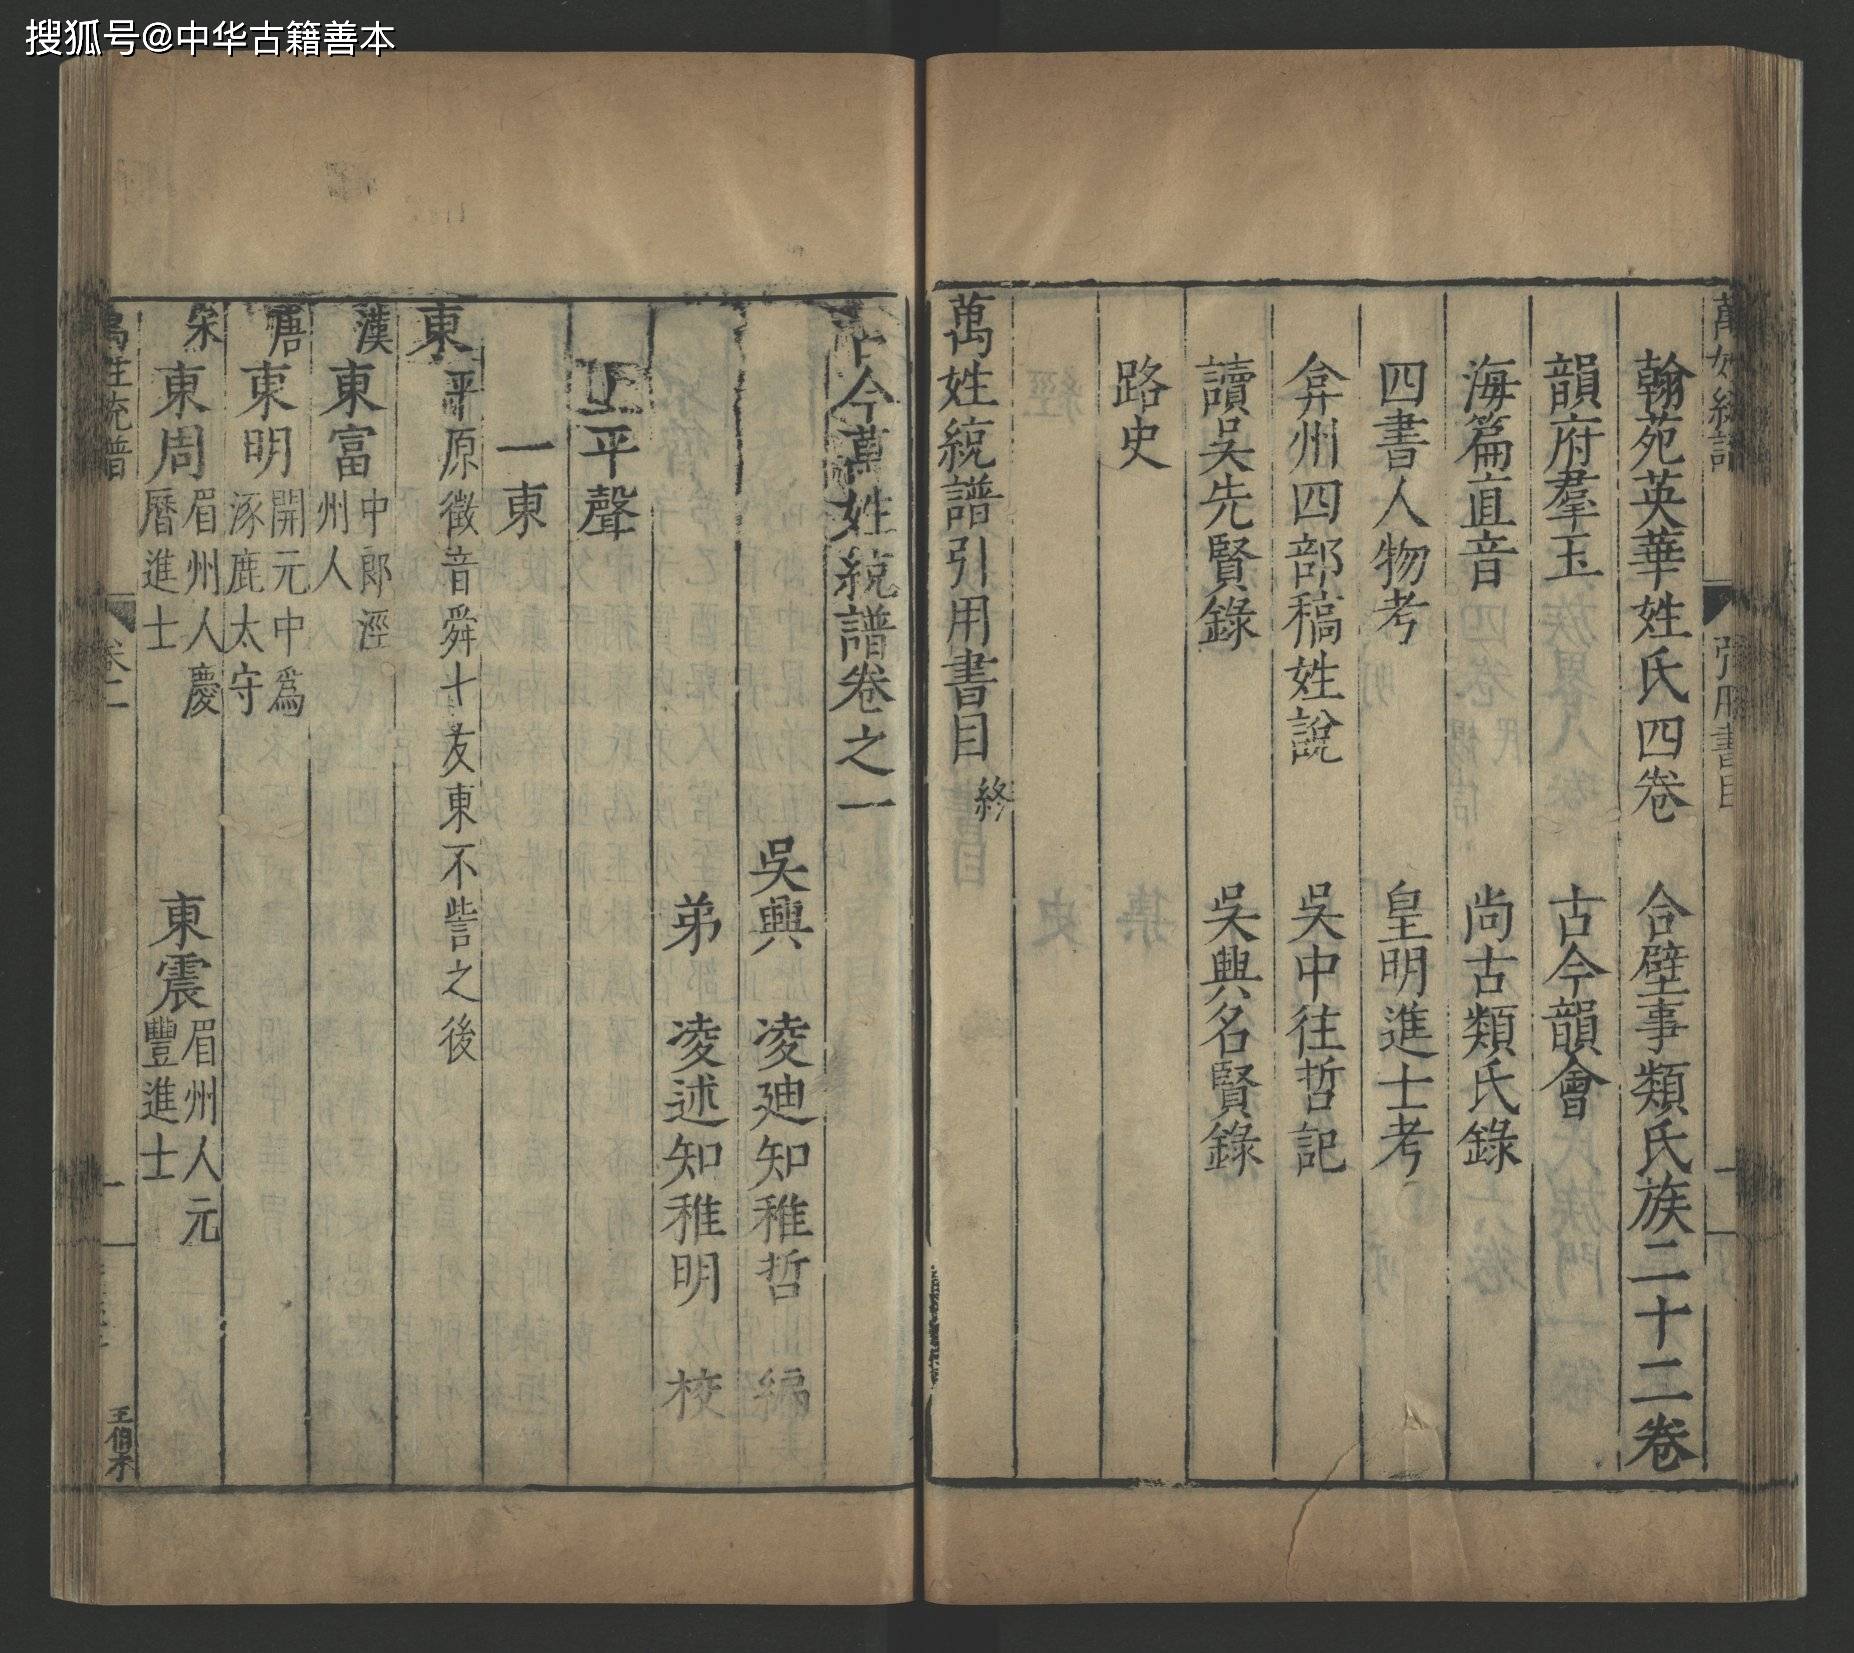 搜狐号@中华古籍善本
翰苑英華姓氏四卷　合璧事類氏族二十二卷
韻府羣玉　古今韻會
海篇直音　尚古類氏錄
四書人物考　皇明進士考
弇州四部稿姓說　吳中往哲記
讀吳先賢錄　吳興名賢錄
路史
萬姓統譜引用書目終
古今萬姓統譜卷之一
吳興　凌迪知稚哲　編
弟　凌述知稚明　校
上平聲
一東
東　平原徵音舜十友東不訾之後
漢　東富　中郎涇州人
唐　東明　開元中為涿鹿太守
宋　東周　眉州人慶曆進士　東震　眉州人元豐進士
萬姓統譜　卷一　一　王伯才